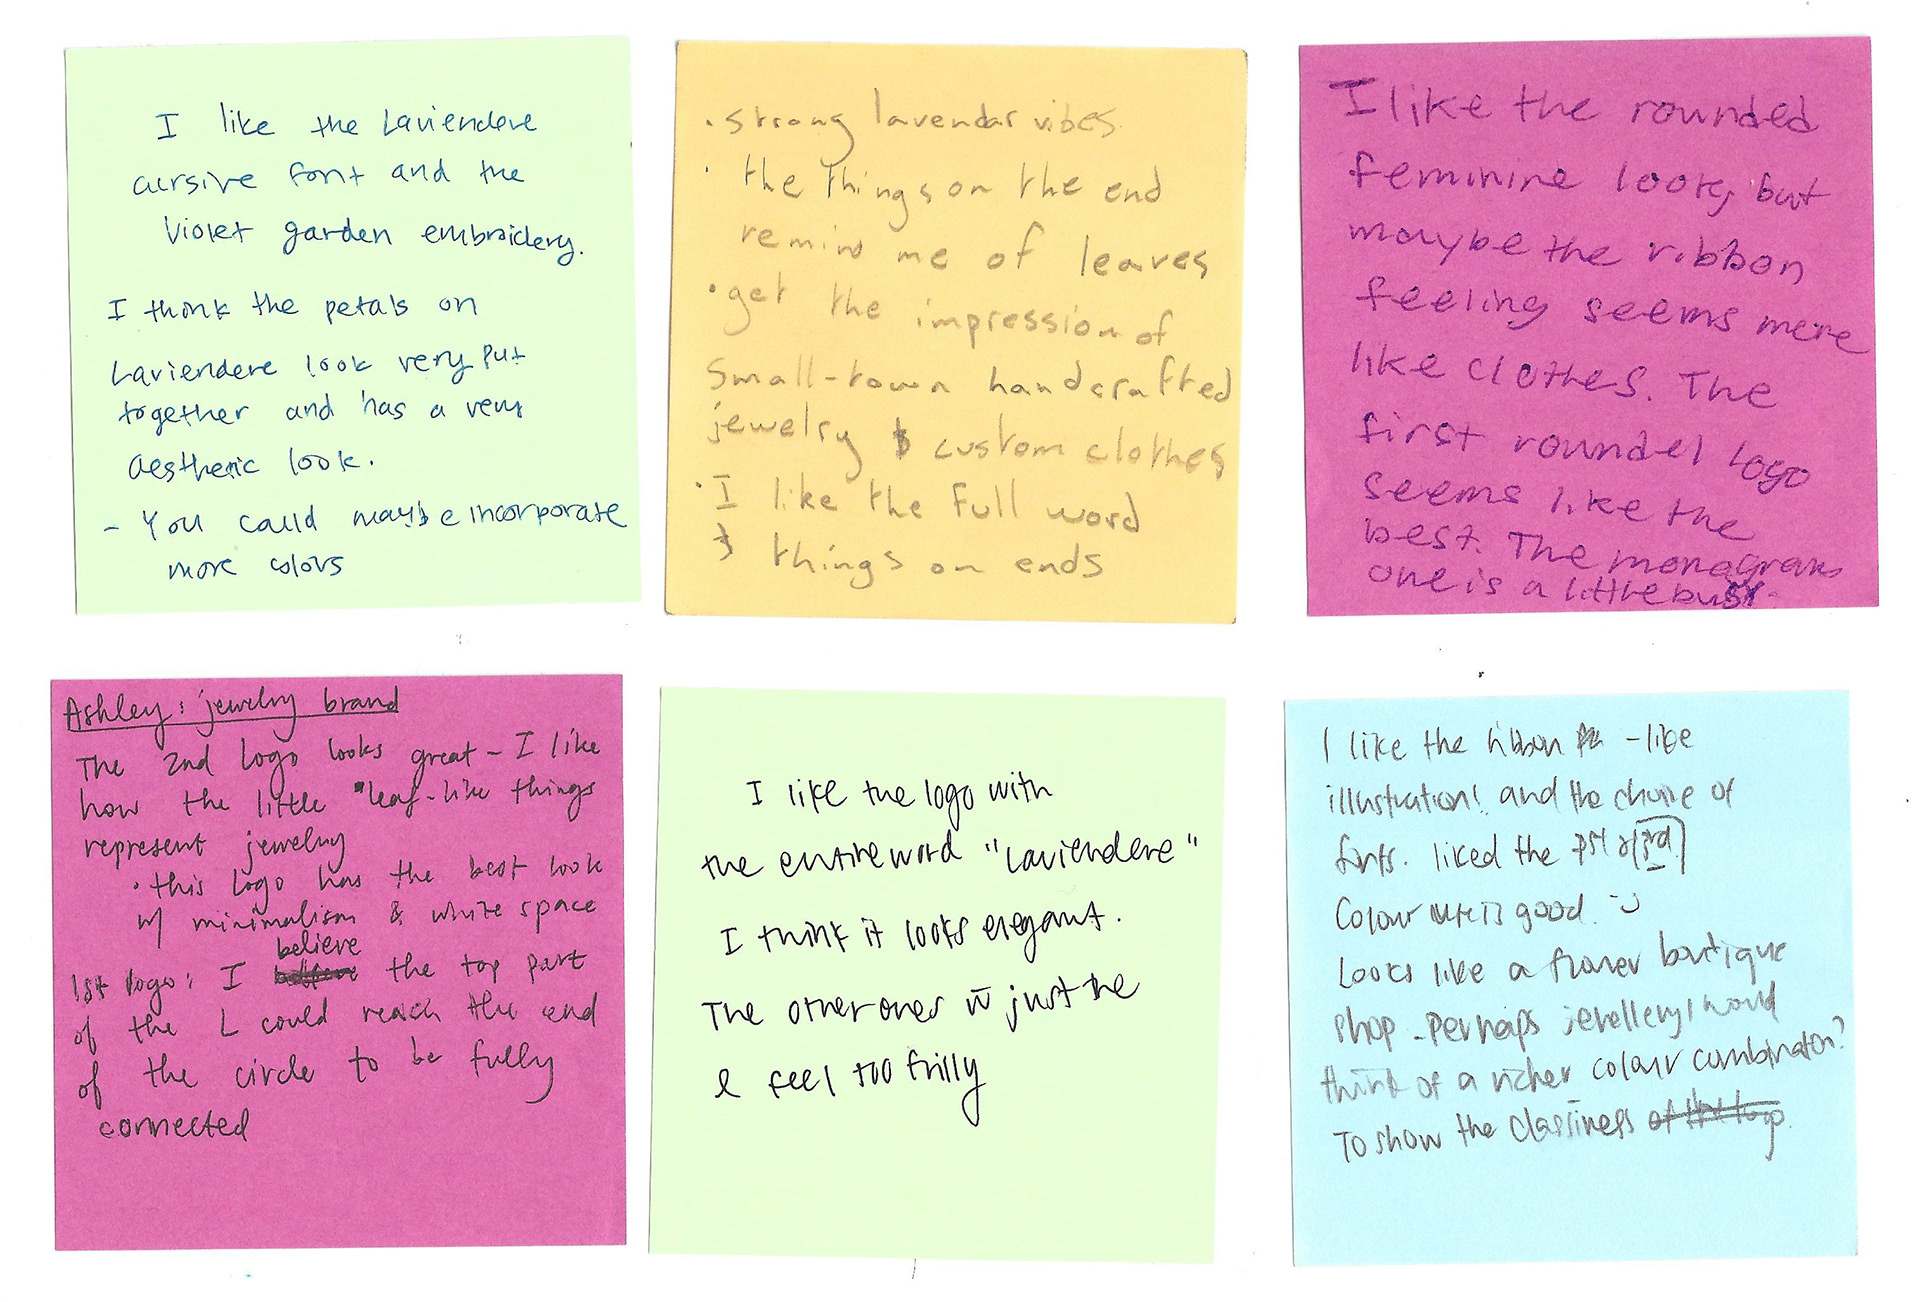 I like the Laviendere
cursive font and the
Violet garden embroidery.
I think the petals on
Laviendere look very put
together and has a very
aesthetic look.
- You could maybe incorporate
more colors
· strong lavendar vibes
· the things on the end
remind me of leaves
· get the impression of
small-town handcrafted
jewelry & custom clothes
· I like the full word
& things on ends
I like the rounded
feminine look, but
maybe the ribbon
feeling seems more
like clothes. The
first roundel logo
seems like the
best. The monogram
one is a little busy.
Ashley: jewelry brand
The 2nd logo looks great - I like
how the little leaf-like things
represent jewelry
· this logo has the best look
w/ minimalism & white space
1st logo: I believe the top part
of the L could reach the end
of the circle to be fully
connected
I like the logo with
the entire word "Laviendere"
I think it looks elegant.
The other ones w just the
L feel too frilly
I like the ribbon -like
illustration! and the choice of
fonts. liked the 1st & 3rd
Colour is good. :)
Looks like a flower boutique
shop. Perhaps jewellery I would
think of a richer colour combination?
To show the classiness